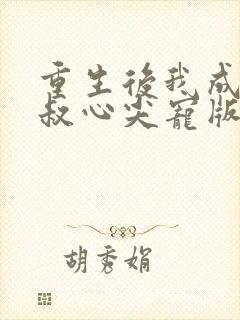 重生後我成
叔心尖寵版
胡秀娟